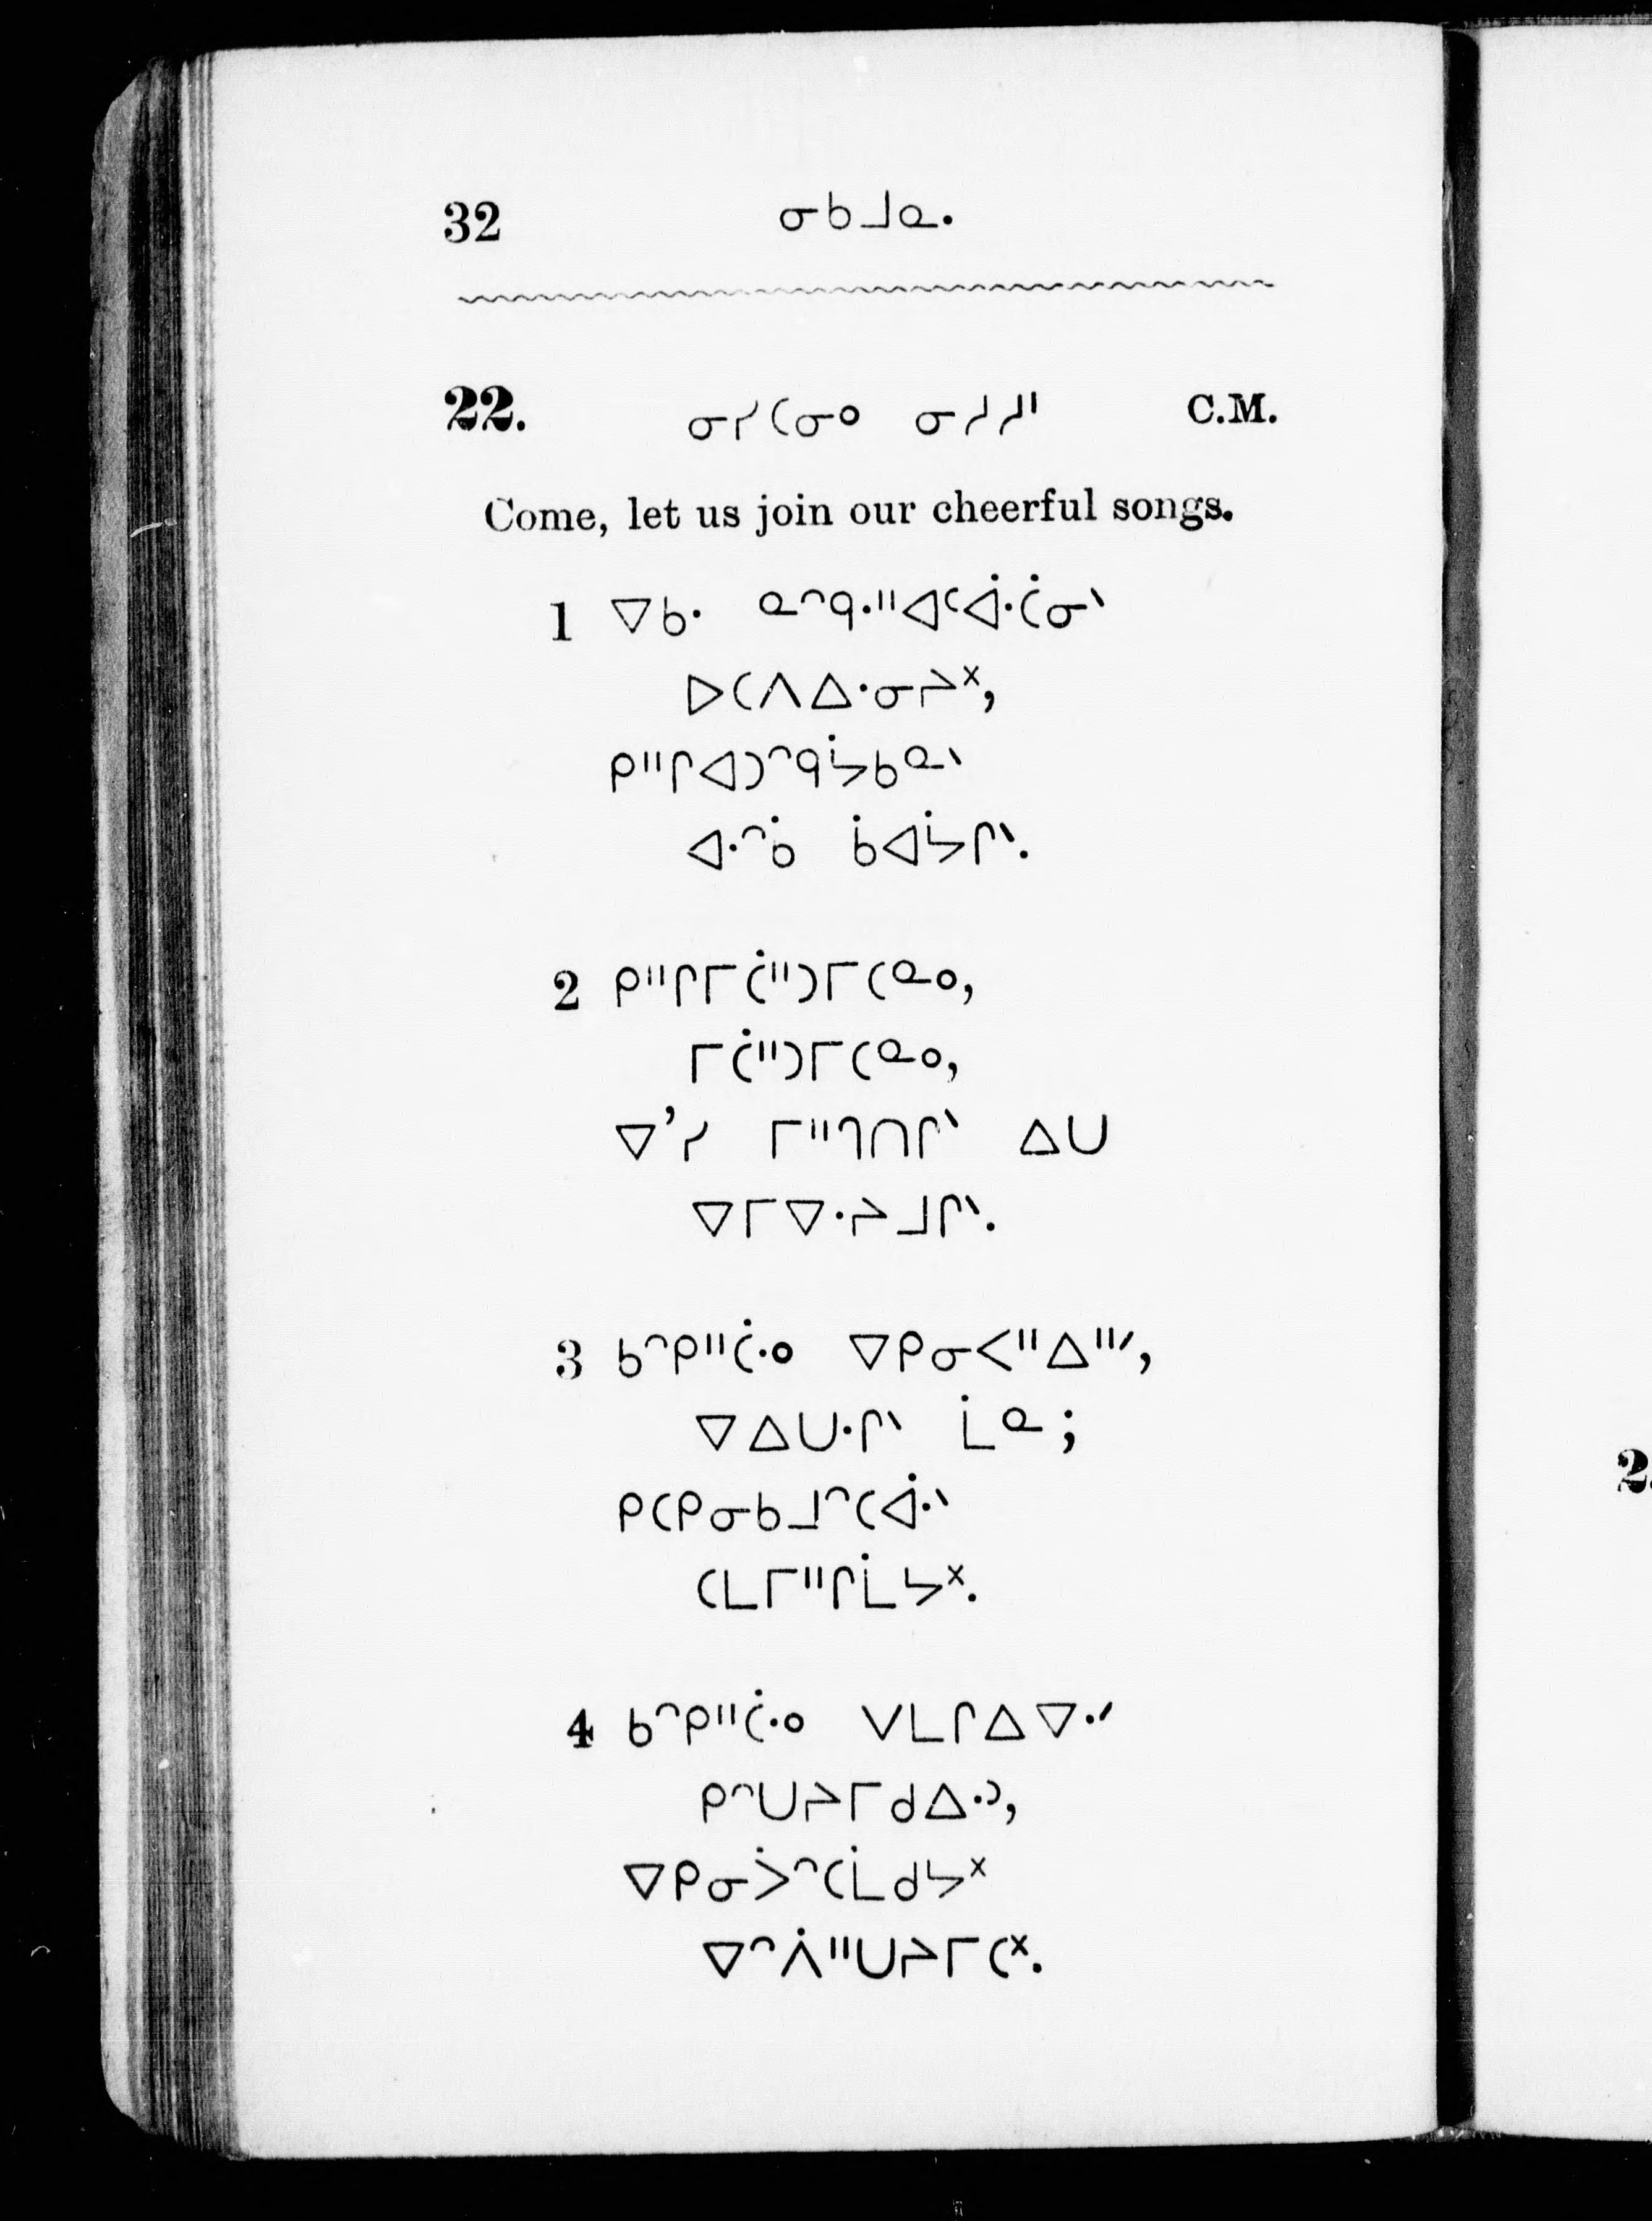 32 ᓂᑲᒧᓇ.
22. ᓂᓯᑕᓂᐤ ᓂᓱᓱᑊ C.M.
Come, let us join our cheerful songs.
1 ᐁᑲᐧ ᓇᐢᑫᐧᐦᐊᑕᐋᐧᑖᓂᐠ
ᐅᑕᐱᐃᐧᓂᔨᕽ,
ᑭᐦᒋᐊᑐᐢᑫᔮᑲᓇᐠ
ᐊᐧᐢᑳ ᑳᐊᔮᒋᐠ.
2 ᑭᐦᒋᒥᑖᐦᑐᒥᑕᓇᐤ,
ᒥᑖᐦᑐᒥᑕᓇᐤ,
ᐁ’ᓯ ᒥᐦᒉᑎᒋᐠ ᐃᑌ
ᐁᒥᐁᐧᔨᒧᒋᐠ.
3 ᑲᐢᑭᐦᑖᐧᐤ ᐁᑭᓂᐸᐦᐃᐦᐟ,
ᐁᐃᑌᐧᒋᐠ ᒫᓇ;
ᑭᑕᑭᓂᑲᒧᐢᑕᐋᐧᐠ
ᑕᒪᒥᐦᒋᒫᔭᕽ.
4 ᑲᐢᑭᐦᑖᐧᐤ ᐯᒪᒋᐃᐁᐧᐟ
ᑭᐢᑌᔨᒥᑯᐃᐧᐣ,
ᐁᑭᓂᐴᐢᑕᒫᑯᔭᕽ
ᐁᐢᐲᐦᑌᔨᒥᑕᕽ.